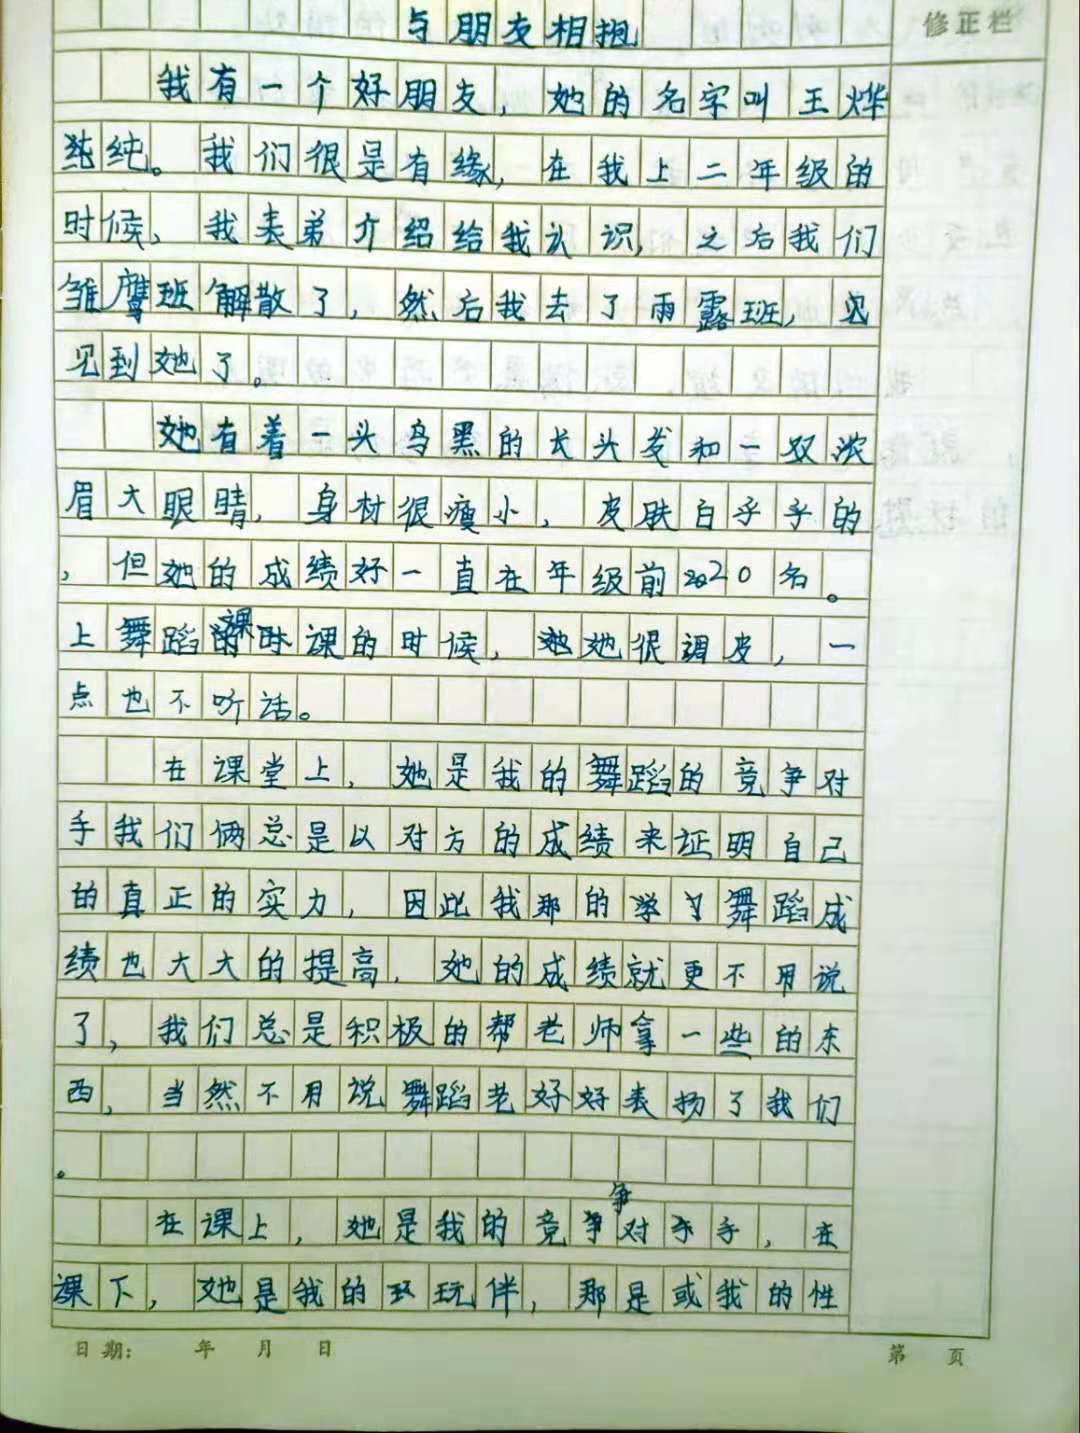 与朋友相抱
修正栏
我有一个好朋友，她的名字叫王烨
纯纯。我们很是有缘，在我上二年级的
时候，我表弟介绍给我认识，之后我们
雏鹰班解散了，然后我去了雨露班，见
见到她了。
她有着一头乌黑的长头发和一双浓
眉大眼睛，身材很瘦小，皮肤白乎乎的
，但她的成绩好一直在年级前20名。
上舞蹈课的时候，她她很调皮，一
点也不听话。
在课堂上，她是我的舞蹈的竞争对
手我们俩总是以对方的成绩来证明自己
的真正的实力，因此我那的学习舞蹈成
绩也大大的提高，她的成绩就更不用说
了，我们总是积极的帮老师拿一些的东
西，当然不用说舞蹈老好好表扬了我们
。
在课上，她是我的竞争对手手，在
课下，她是我的玩玩伴，那是或我的性
日期： 年 月 日
第 页